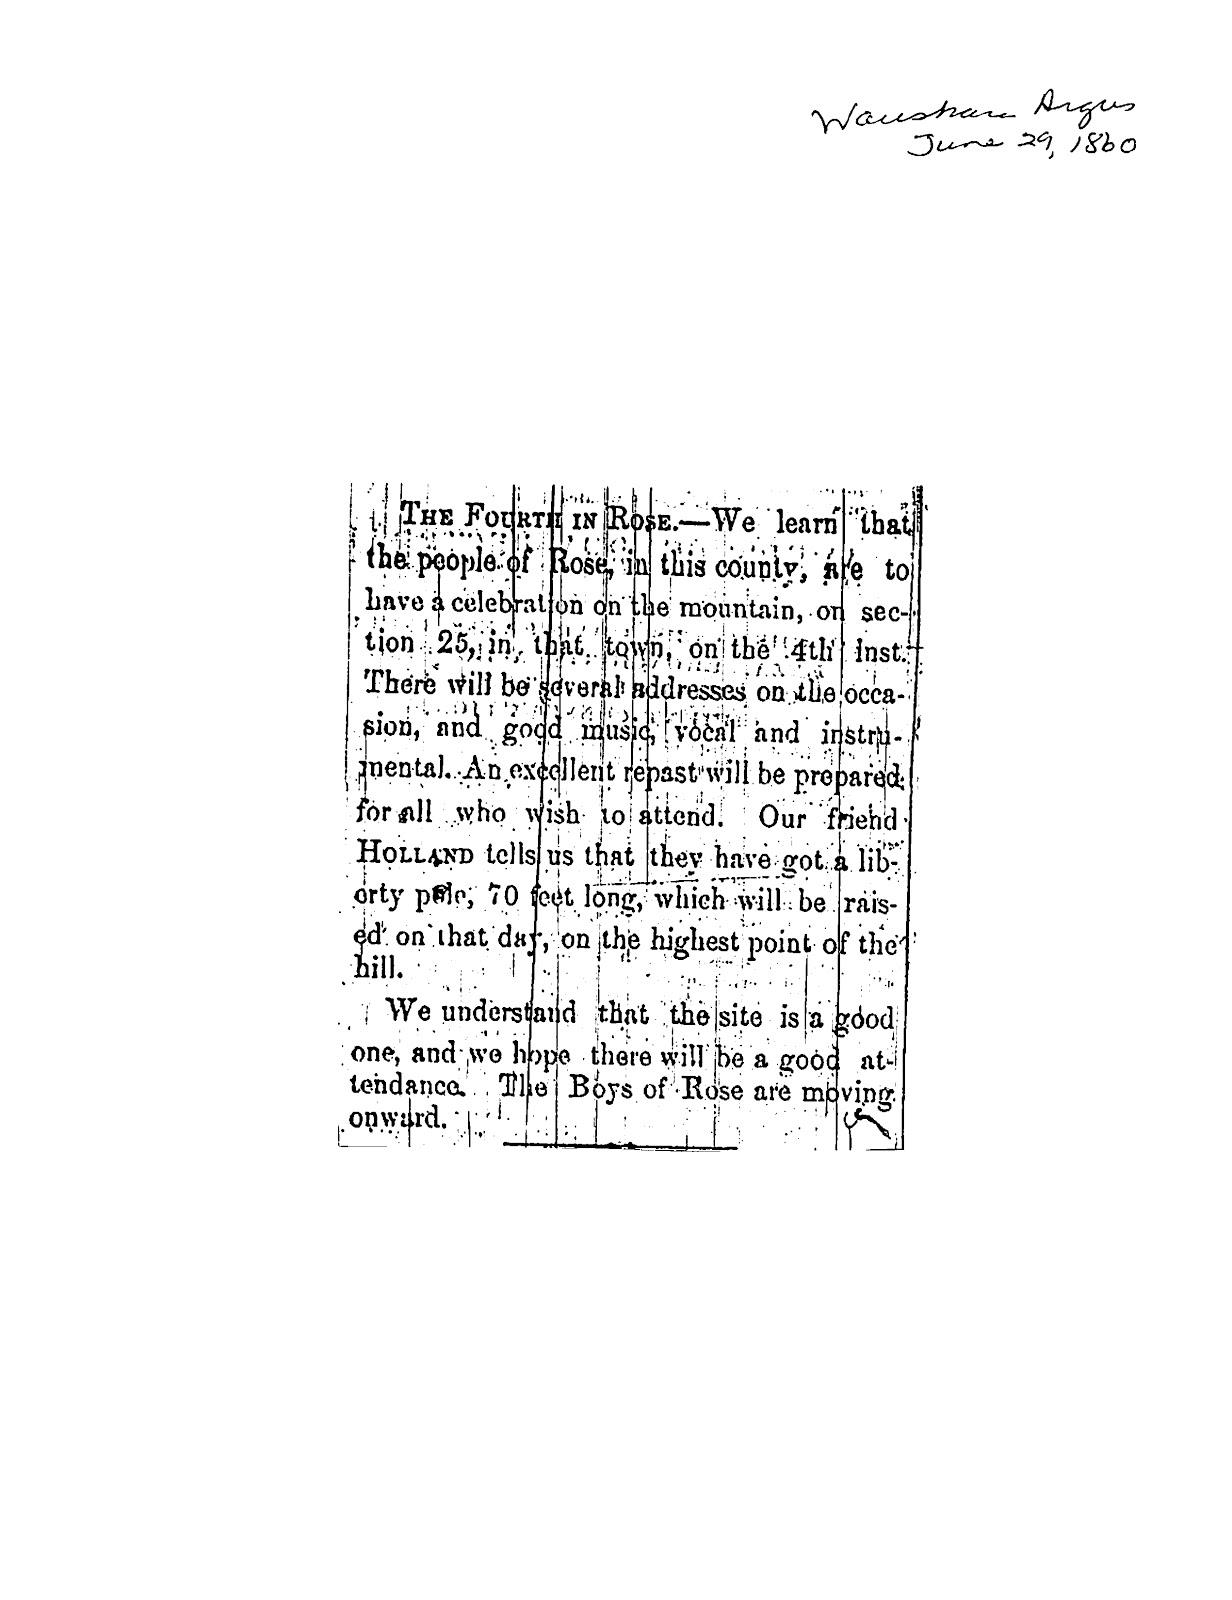 Waushara Argus
June 29, 1860
THE FOURTH IN ROSE.—We learn that
the people of Rose, in this county, are to
have a celebration on the mountain, on sec-
tion 25, in that town, on the 4th inst.
There will be several addresses on the occa-
sion, and good music, vocal and instru-
mental. An excellent repast will be prepared
for all who wish to attend. Our friend
HOLLAND tells us that they have got a lib-
erty pole, 70 feet long, which will be rais-
ed on that day, on the highest point of the
hill.
We understand that the site is a good
one, and we hope there will be a good at-
tendance. The Boys of Rose are moving
onward.